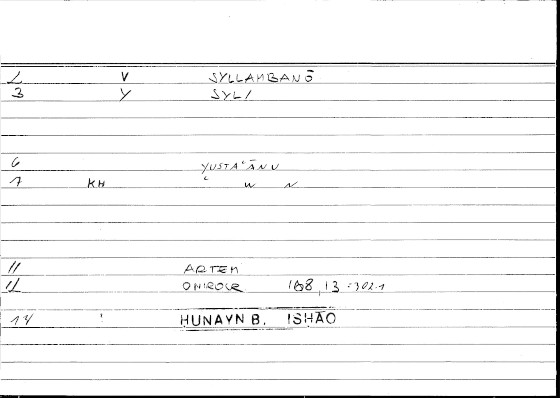 2 V SYLLAMBANŌ
3 Y SYLI
6 YUSTAʿĀNU
7 KH ʿ W N
11 ARTEM
12 ONIROCR 168,13 = 302.1
14 ' HUNAYN B. ISHĀQ